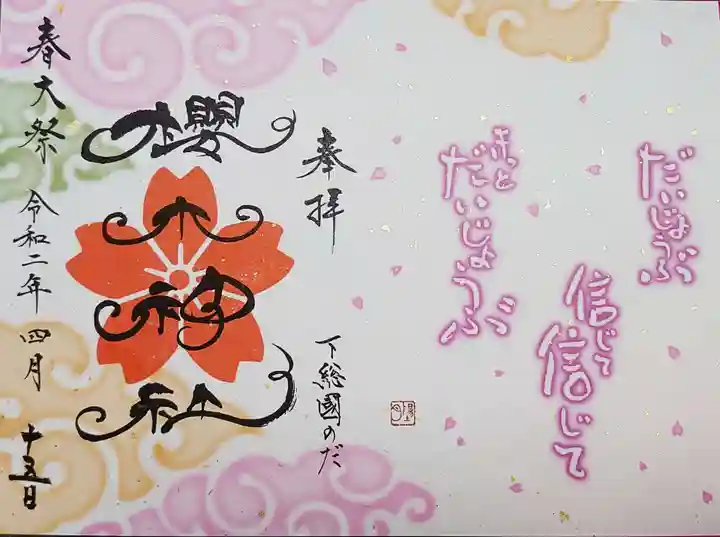 だいじょうぶ
信じて
信じて
きっと
だいじょうぶ
奉拝
下総國のだ
櫻木神社
春大祭
令和二年
四月
十五日